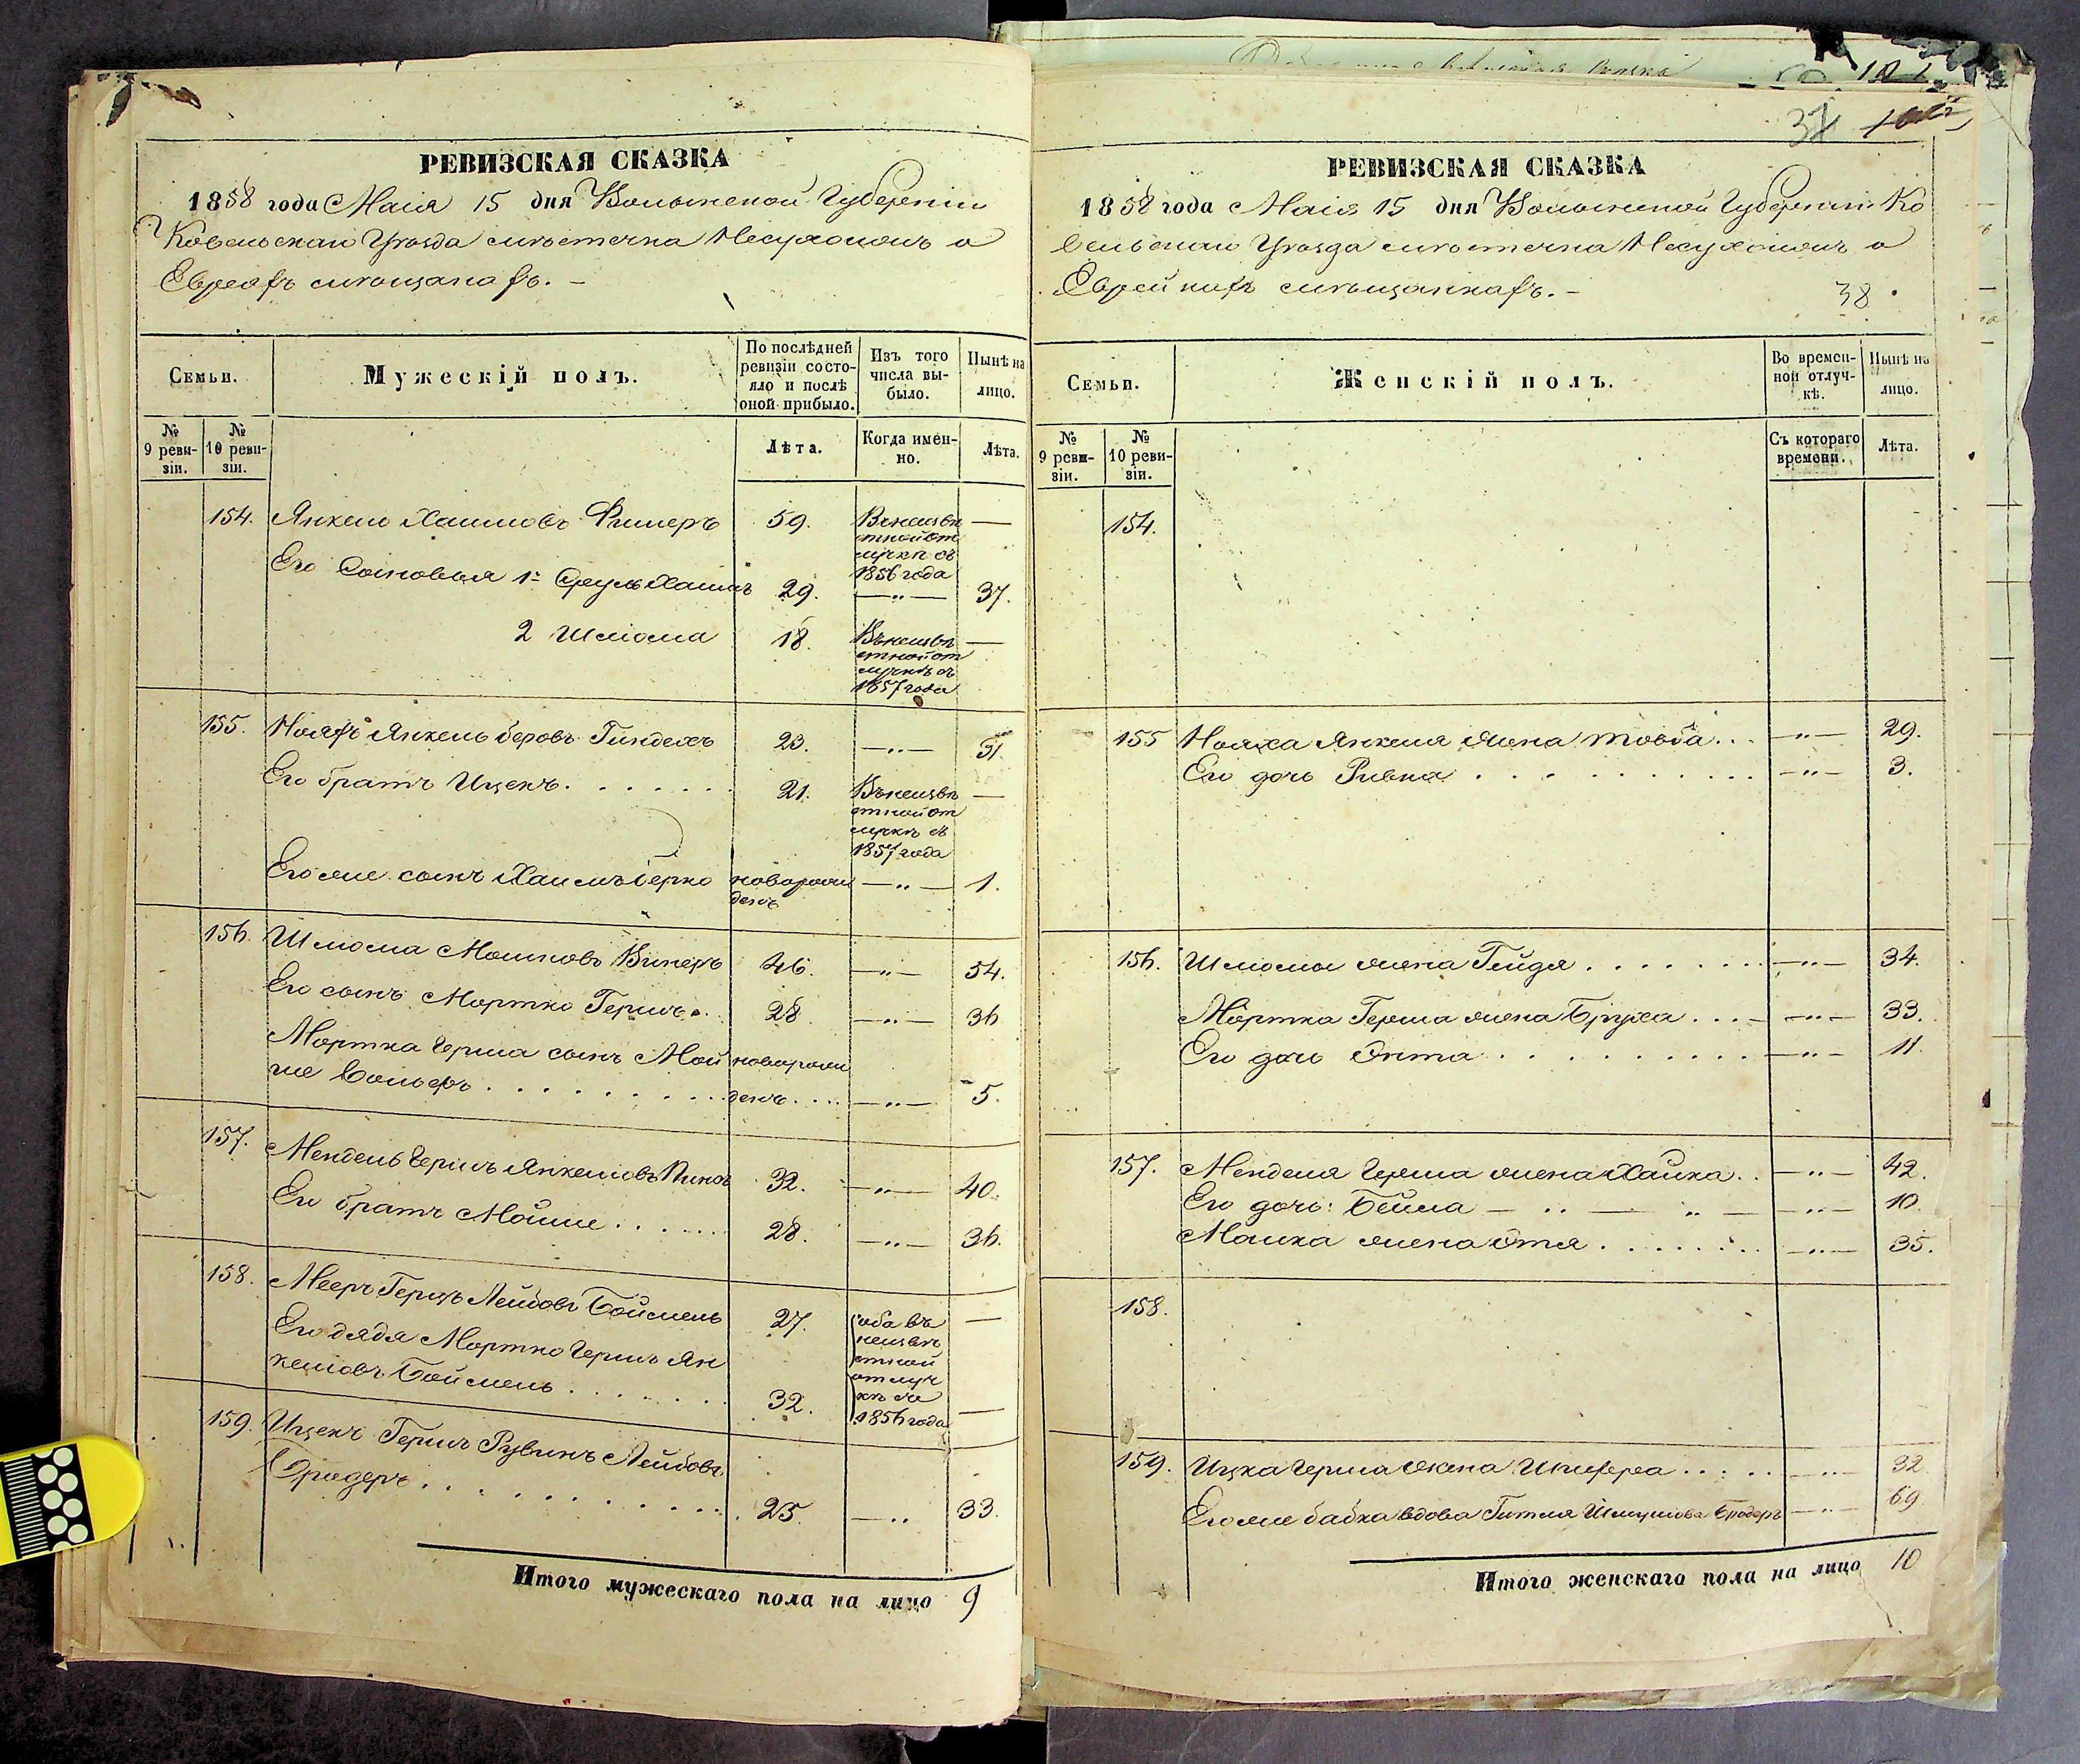 РЕВИЗСКАЯ СКАЗКА
1858 года Маія 15 дня Волынской Губерніи
Ковельскаго Уѣзда мѣстечка Несухоижъ о
Евреяхъ мѣщанахъ. –
Семьи.
Мужескій полъ.
По послѣдней ревизіи состояло и послѣ оной прибыло.
Изъ того числа выбыло.
Нынѣ на лицо.
№ 9 ревизіи.
№ 10 ревизіи.
Лѣта.
Когда именно.
Лѣта.
154. Янкель Хаимовъ Фишеръ 59. Въ неизвѣстной отлучкѣ съ 1856 года —
Его Сыновья 1й Сруль Хаимъ 29. —"— 37.
2 Шліома 18. Въ неизвѣстной отлучкѣ съ 1857 года —
155. Нояхъ Янкель Беровъ 23. —"— 31.
Его братъ Ицекъ. 21. Въ неизвѣстной отлучкѣ съ 1857 года —
Его же сынъ Хаимъ Берко новорожденъ —"— 1.
156. Шліома Мошковъ Винеръ 46. —"— 54.
Его сынъ Мортко Гершъ. 28 —"— 36
Мортка Герша сынъ Мой новорож
ше Вольфъ денъ —"— 5.
157. Мендель Гершъ Янкелевъ 32. —"— 40.
Его братъ Мойше 28. —"— 36.
158. Мееръ Герцъ Лейбовъ Боймель 27. оба въ неизвѣстной отлучкѣ съ 1856 года —
Его дядя Мортко Гершъ Ян
келевъ Боймель 32. —
159. Ицекъ Гершъ Рувинъ Лейбовъ
Бродеръ 25. —" 33.
Итого мужескаго пола на лицо 9
37
РЕВИЗСКАЯ СКАЗКА
1858 года Маія 15 дня Волынской Губерніи Ко
вельскаго Уѣзда мѣстечка Несухоижъ о
Еврейкахъ мѣщанкахъ. –
38
Семьи.
Женскій полъ.
Во временной отлучкѣ.
Нынѣ на лицо.
№ 9 ревизіи.
№ 10 ревизіи.
Съ котораго времени.
Лѣта.
154.
155 Нояха Янкеля жена Товба —"— 29.
Его дочь Ривка —"— 3.
156. Шліомы жена Гейдя —"— 34.
Мортка Герша жена Бруха —"— 33.
Его дочь Энта —"— 11.
157. Менделя Герша жена Хайка —"— 42.
Его дочь: Бейла —"— 10.
Мошка жена Этя —"— 35.
158.
159. Ицка Герша жена Шифра —"— 32
Его же бабка вдова Гитля Шмулиова Бродеръ —"— 69
Итого женскаго пола на лицо 10